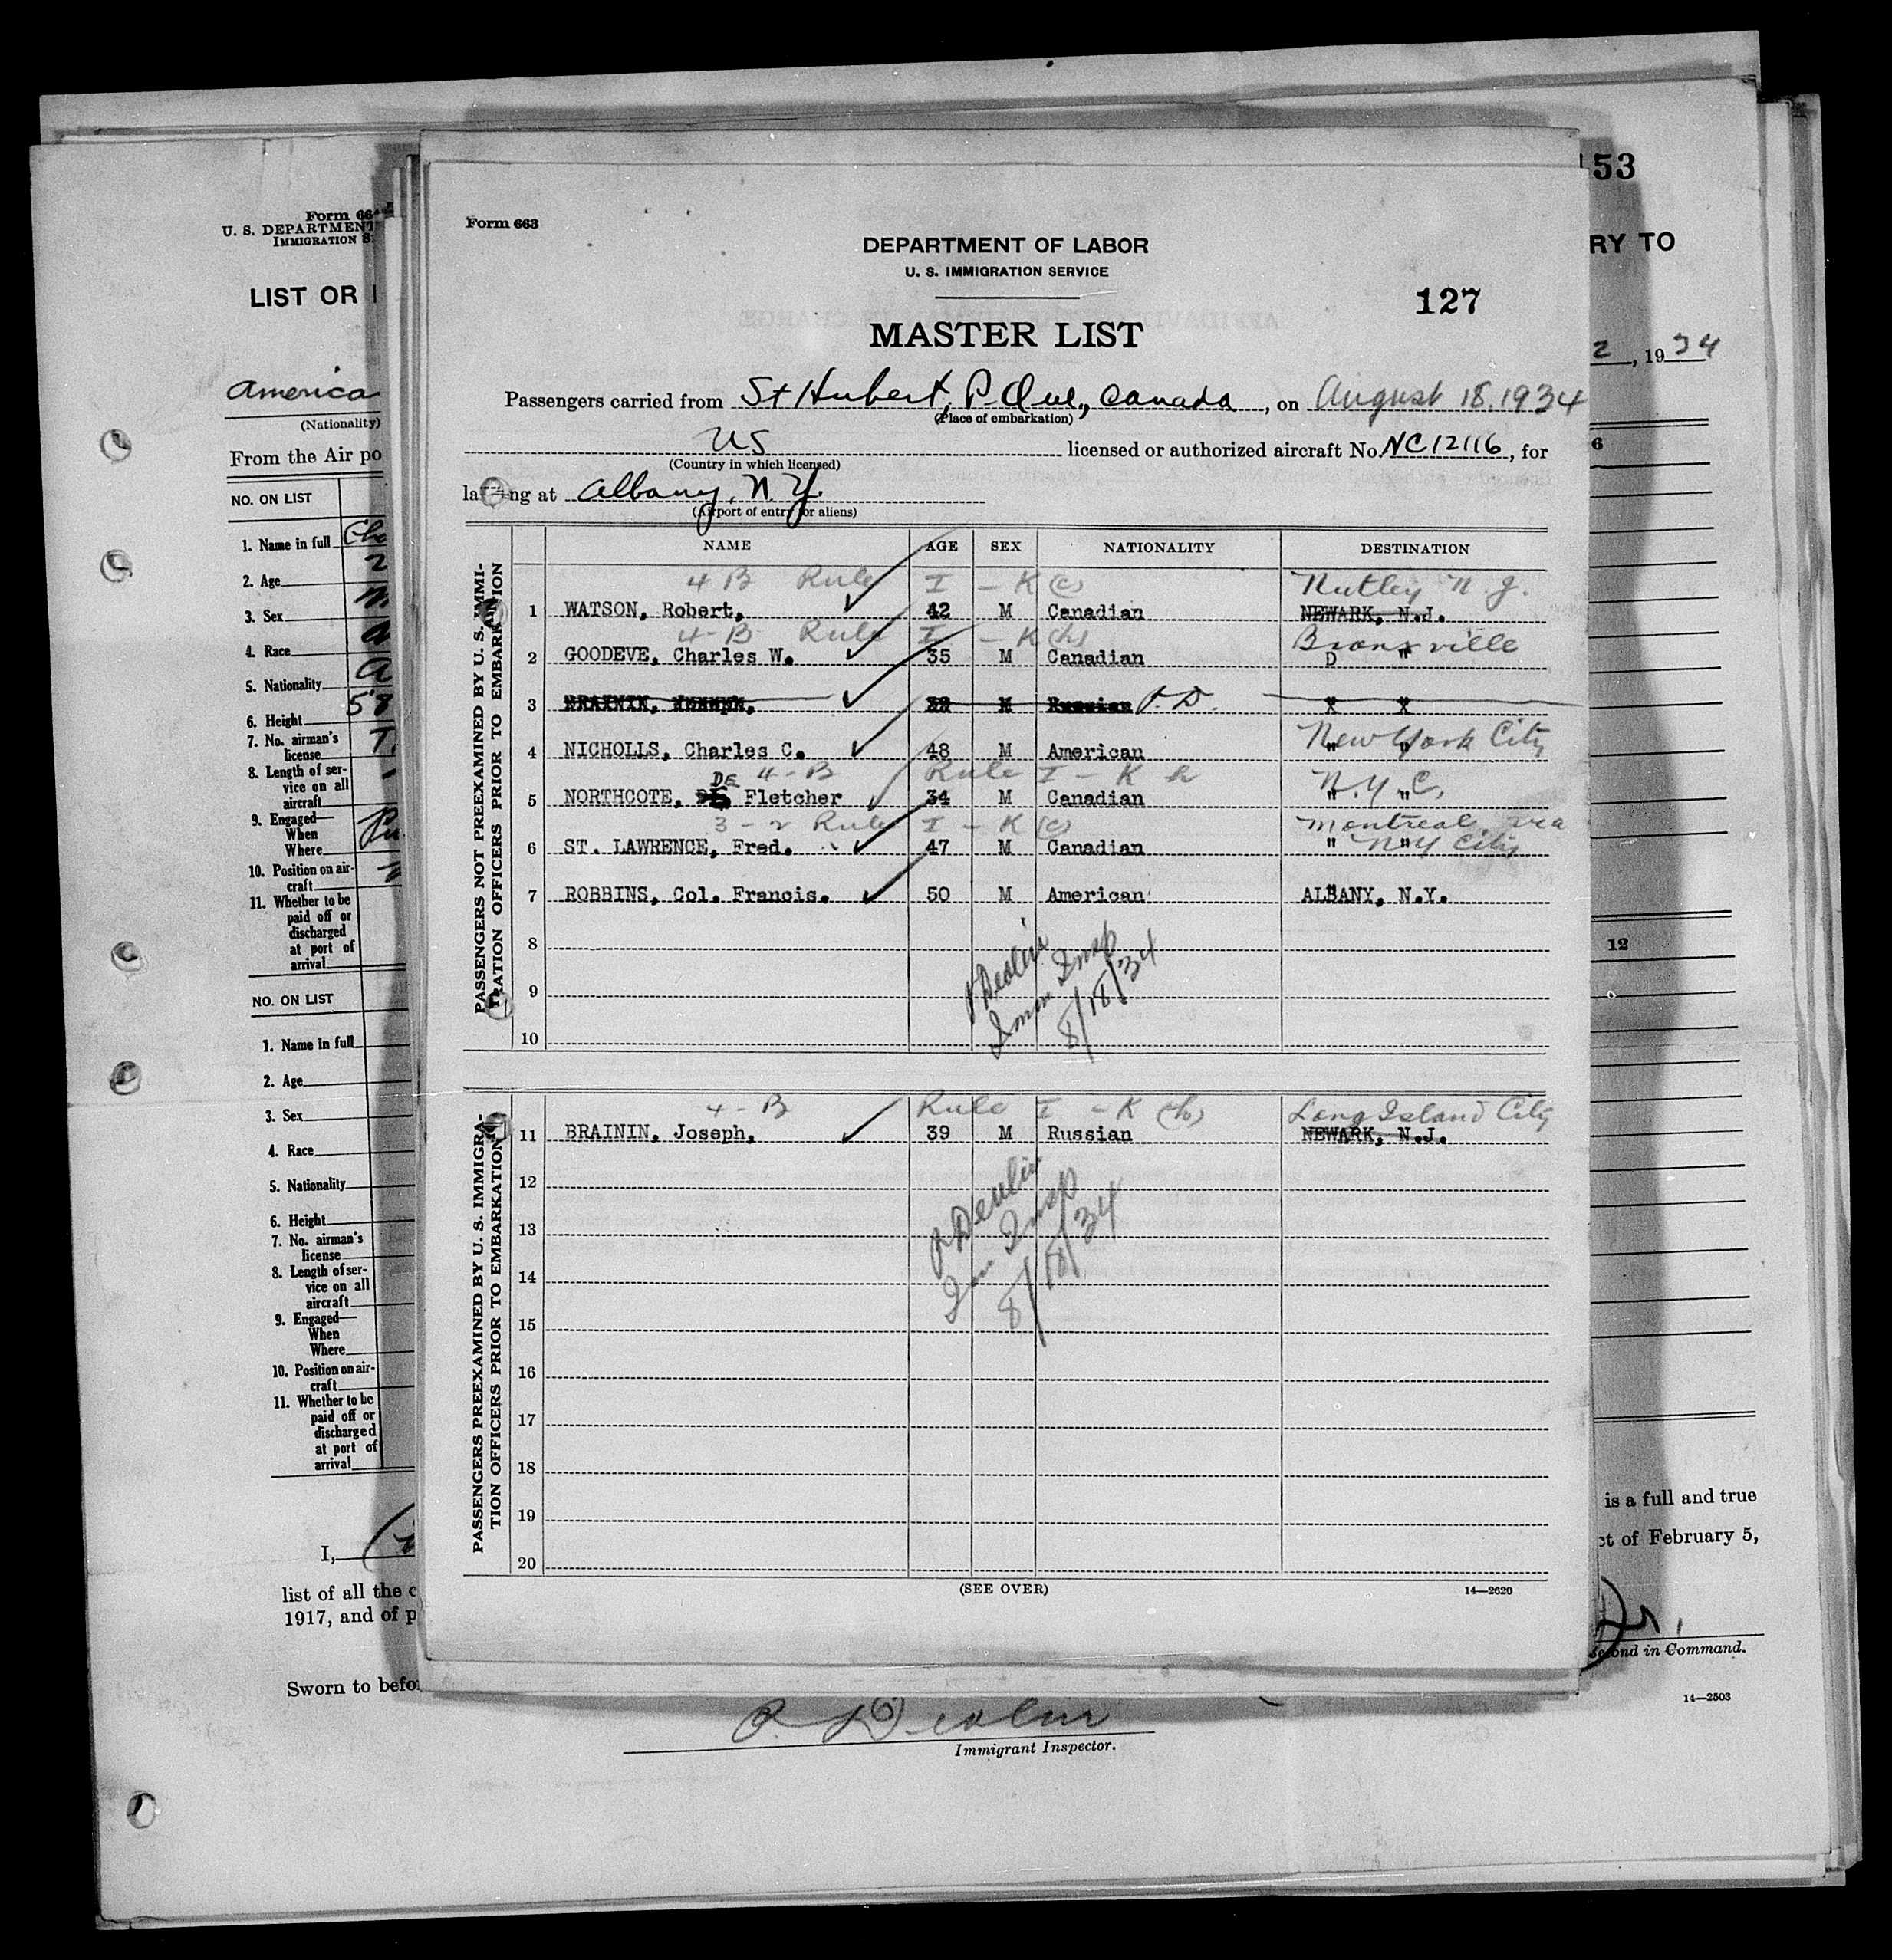 Form 663
DEPARTMENT OF LABOR
U. S. IMMIGRATION SERVICE
127
MASTER LIST
Passengers carried from St Hubert, P. Que., Canada, on August 18, 1934
(Place of embarkation)
US licensed or authorized aircraft No. NC12116, for
(Country in which licensed)
landing at Albany, N.Y.
(Airport of entry for aliens)
NAME AGE SEX NATIONALITY DESTINATION
PASSENGERS NOT PREEXAMINED BY U. S. IMMI-
GRATION OFFICERS PRIOR TO EMBARKATION
4 B Rule I - K (c) Nutley N. J.
1 WATSON, Robert, 42 M Canadian NEWARK, N.J.
4-B Rule I - K (h) Bronxville
2 GOODEVE, Charles W. 35 M Canadian D "
3 BRAININ, Joseph, 39 M Russian P.D. X X
New York City
4 NICHOLLS, Charles C. 48 M American " "
DE 4-B Rule I - K h N.Y.C.
5 NORTHCOTE, Fletcher 34 M Canadian " "
3-2 Rule I - K (c) Montreal via
6 ST. LAWRENCE, Fred. 47 M Canadian " " N Y City
7 ROBBINS, Col. Francis. 50 M American ALBANY, N.Y.
8
9
10
P Devlin
Imm Insp
8/18/34
PASSENGERS PREEXAMINED BY U. S. IMMIGRA-
TION OFFICERS PRIOR TO EMBARKATION
4-B Rule I - K (h) Long Island City
11 BRAININ, Joseph, 39 M Russian NEWARK, N.J.
12
13
14
15
16
17
18
19
20
P Devlin
Imm Insp
8/18/34
(SEE OVER)
14—2620
Form 66
U. S. DEPARTMENT
IMMIGRATION S
LIST OR
America
(Nationality)
From the Air po
NO. ON LIST
1. Name in full
2. Age
3. Sex
4. Race
5. Nationality
6. Height
7. No. airman's
license
8. Length of ser-
vice on all
aircraft
9. Engaged—
When
Where
10. Position on air-
craft
11. Whether to be
paid off or
discharged
at port of
arrival
NO. ON LIST
1. Name in full
2. Age
3. Sex
4. Race
5. Nationality
6. Height
7. No. airman's
license
8. Length of ser-
vice on all
aircraft
9. Engaged—
When
Where
10. Position on air-
craft
11. Whether to be
paid off or
discharged
at port of
arrival
I,
list of all the
1917, and of p
Sworn to befo
53
RY TO
2, 1934
6
12
is a full and true
ct of February 5,
Jr.
Second in Command.
14—2503
P. Devlin
Immigrant Inspector.